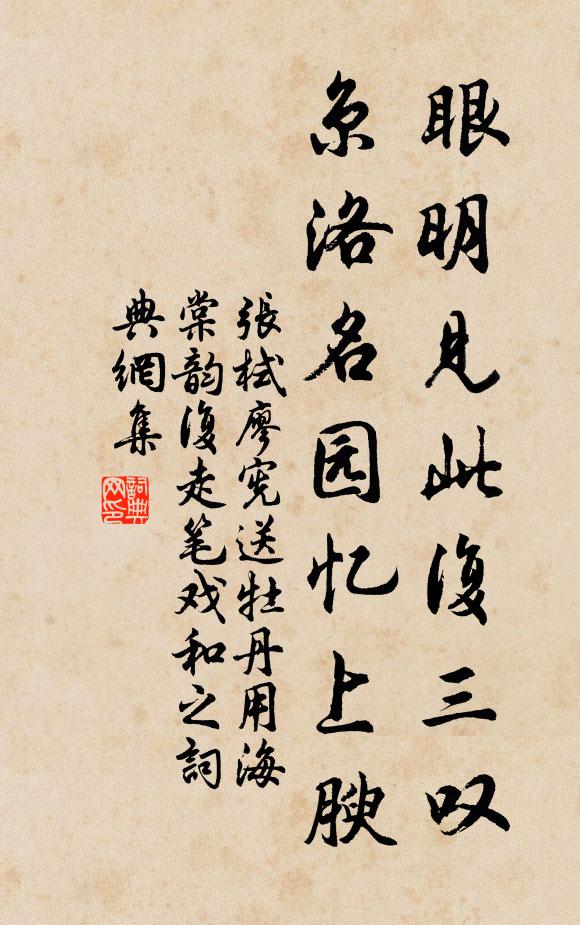 眼明見此復三叹
京洛名园忆上腴
張栻廖宪送牡丹用海
棠韵復走笔戏和之詞
典網集
詞典
网印